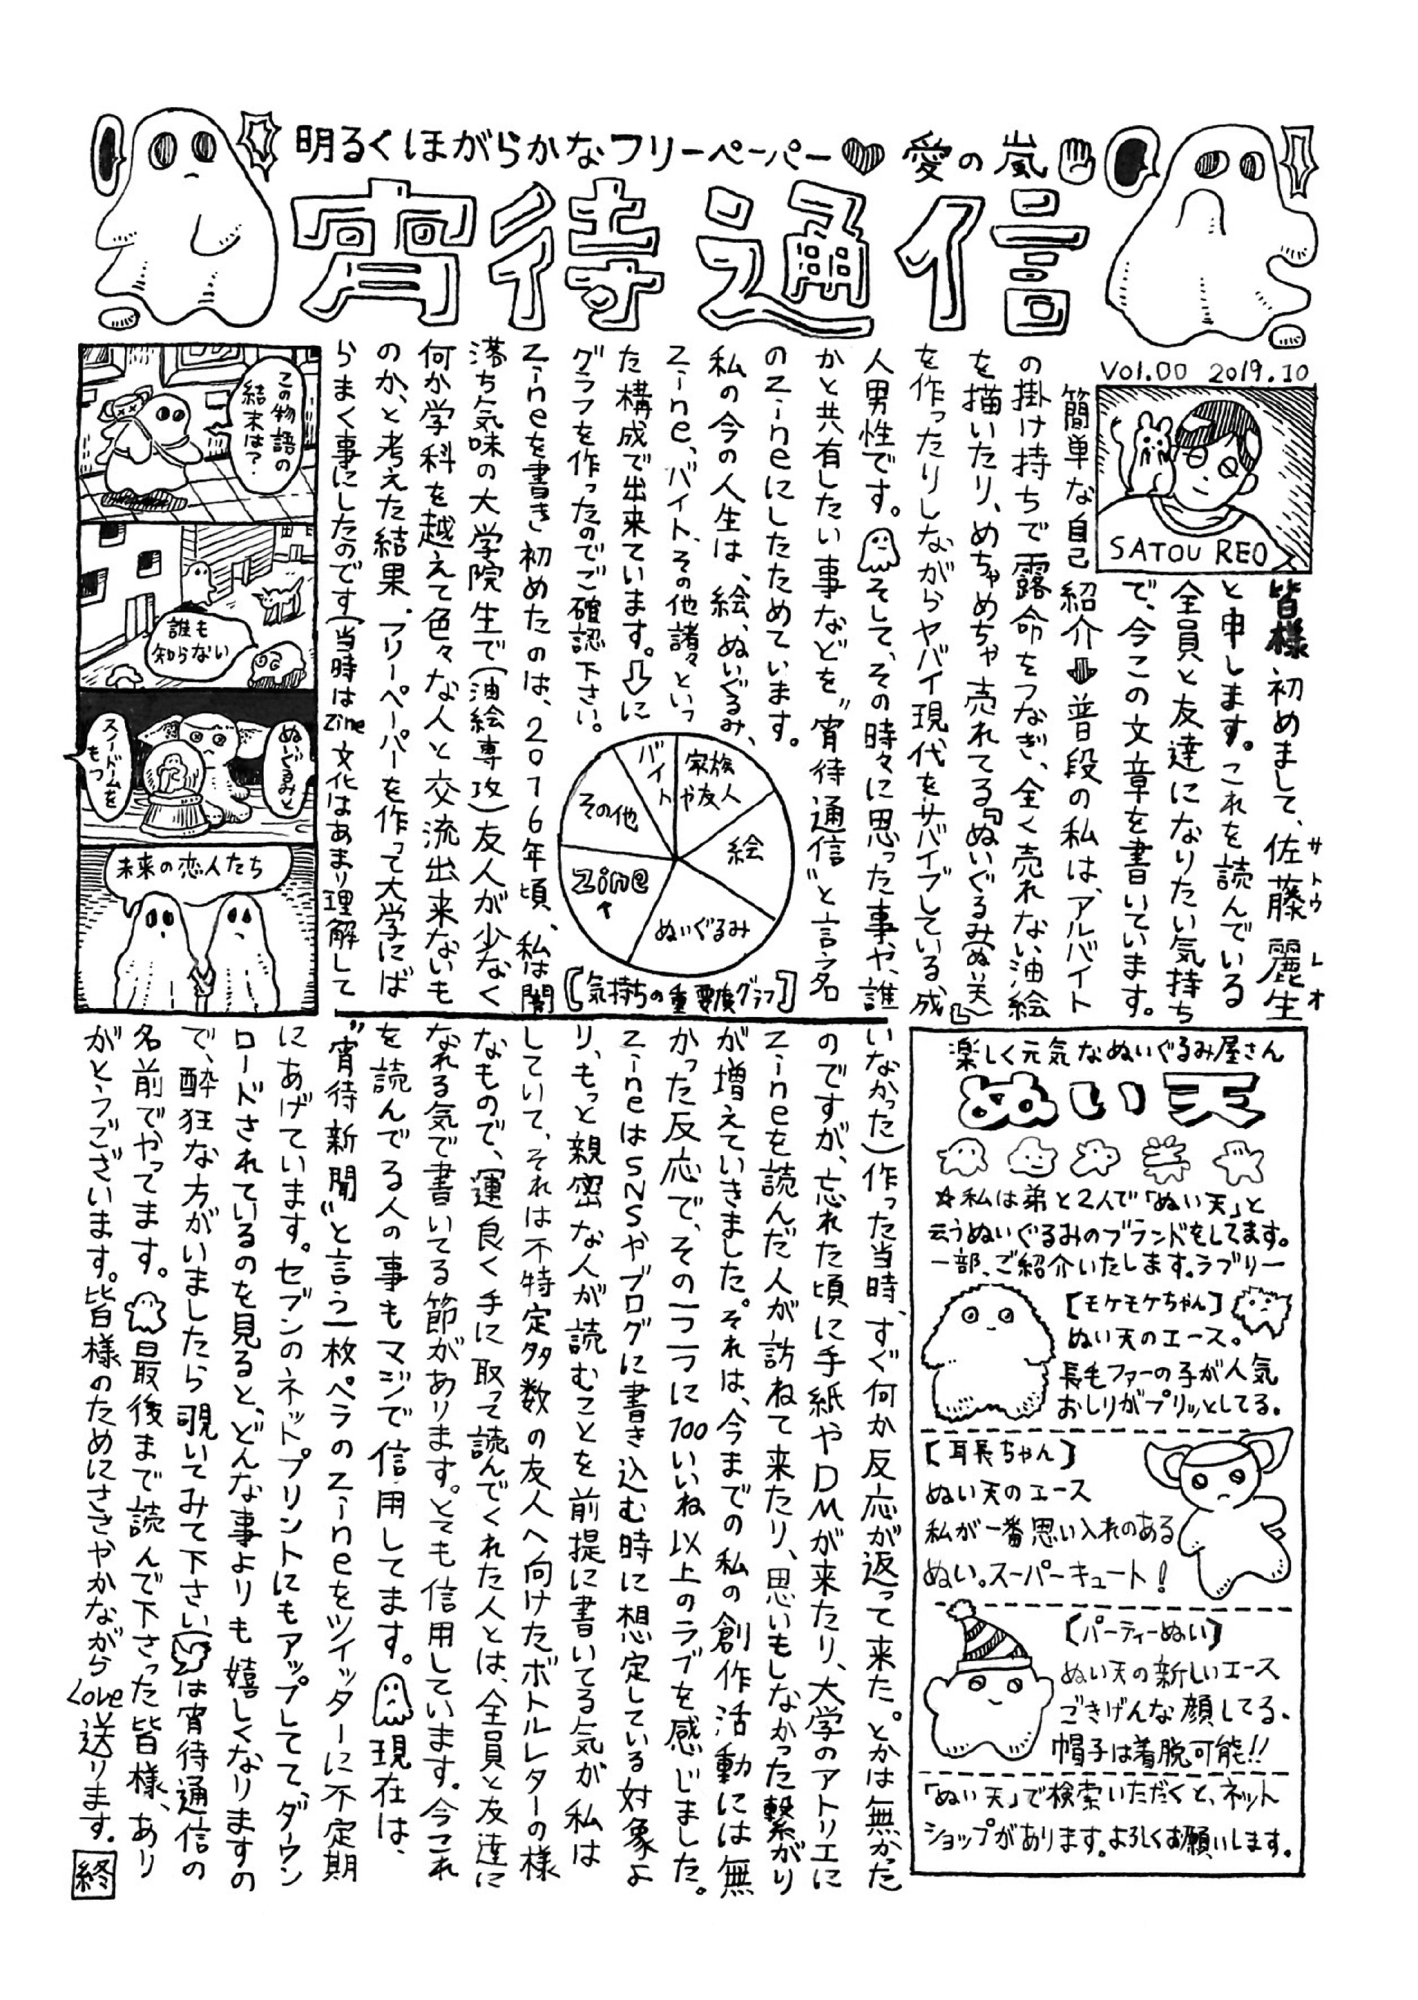 明るくほがらかなフリーペーパー♥愛の嵐
宵待通信
vol.00 2019.10
SATOU REO
皆様初めまして、佐藤麗生
サトウ レオ
と申します。これを読んでいる
全員と友達になりたい気持ち
で、今この文章を書いています。
簡単な自己紹介⬇普段の私は、アルバイト
の掛け持ちで露命をつなぎ、全く売れない油絵
を描いたり、めちゃめちゃ売れてる『ぬいぐるみ(ぬい天)』
を作ったりしながらヤバイ現代をサバイブしている、成
人男性です。そして、その時々に思った事や、誰
かと共有したい事などを〝宵待通信〟と言う名
のZineにしたためています。
私の今の人生は、絵、ぬいぐるみ、
Zine、バイト、その他諸々といっ
た構成で出来ています。⇩に
グラフを作ったのでご確認下さい。
家族や友人
絵
ぬいぐるみ
zine
↑
その他
バイト
【気持ちの重要度グラフ】
Zineを書き初めたのは、2016年頃、私は闇
落ち気味の大学院生で(油絵専攻)友人が少なく
何か学科を越えて色々な人と交流出来ないも
のか、と考えた結果、フリーペーパーを作って大学にば
らまく事にしたのです(当時はzine文化はあまり理解して
この物語の
結末は?
誰も
知らない
ぬいぐるみと
スノードームを
もつ
未来の恋人たち
楽しく元気なぬいぐるみ屋さん
ぬい天
☆私は弟と2人で「ぬい天」と
云うぬいぐるみのブランドをしてます。
一部、ご紹介いたします。ラブリー
【モケモケちゃん】
ぬい天のエース。
長毛ファーの子が人気
おしりがプリッとしてる。
【耳長ちゃん】
ぬい天のエース
私が一番思い入れのある
ぬい。スーパーキュート!
【パーティーぬい】
ぬい天の新しいエース
ごきげんな顔してる、
帽子は着脱可能!!
「ぬい天」で検索いただくと、ネット
ショップがあります。よろしくお願いします。
いなかった)作った当時、すぐ何か反応が返って来た。とかは無かった
のですが、忘れた頃に手紙やDMが来たり、大学のアトリエに
Zineを読んだ人が訪ねて来たり、思いもしなかった繋がり
が増えていきました。それは、今までの私の創作活動には無
かった反応で、その一つ一つに100いいね以上のラブを感じました。
ZineはSNSやブログに書き込む時に想定している対象よ
り、もっと親密な人が読むことを前提に書いてる気が私は
していて、それは不特定多数の友人へ向けたボトルレターの様
なもので、運良く手に取って読んでくれた人とは、全員と友達に
なれる気で書いてる節があります。とても信用しています。今これ
を読んでる人の事もマジで信用してます。現在は、
〝宵待新聞〟と言う一枚ペラのZineをツイッターに不定期
にあげています。セブンのネットプリントにもアップしてて、ダウン
ロードされているのを見ると、どんな事よりも嬉しくなりますの
で、酔狂な方がいましたら覗いてみて下さい(は宵待通信の
名前でやってます。最後まで読んで下さった皆様、あり
がとうございます。皆様のためにささやかながらLove送ります。
終